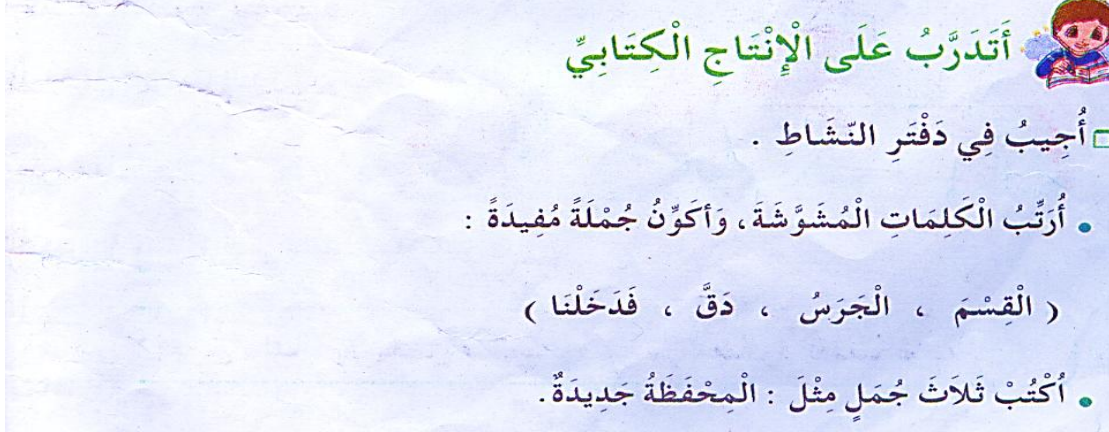 أَتَدَرَّبُ عَلَى الْإِنْتَاجِ الْكِتَابِيِّ
أُجِيبُ فِي دَفْتَرِ النّشَاطِ .
• أُرَتِّبُ الْكَلِمَاتِ الْمُشَوَّشَةَ ، وَأكَوِّنُ جُمْلَةً مُفِيدَةً :
( الْقِسْمَ ، الْجَرَسُ ، دَقَّ ، فَدَخَلْنَا )
• اُكْتُبْ ثَلاَثَ جُمَلٍ مِثْلَ : الْمِحْفَظَةُ جَدِيدَةٌ .